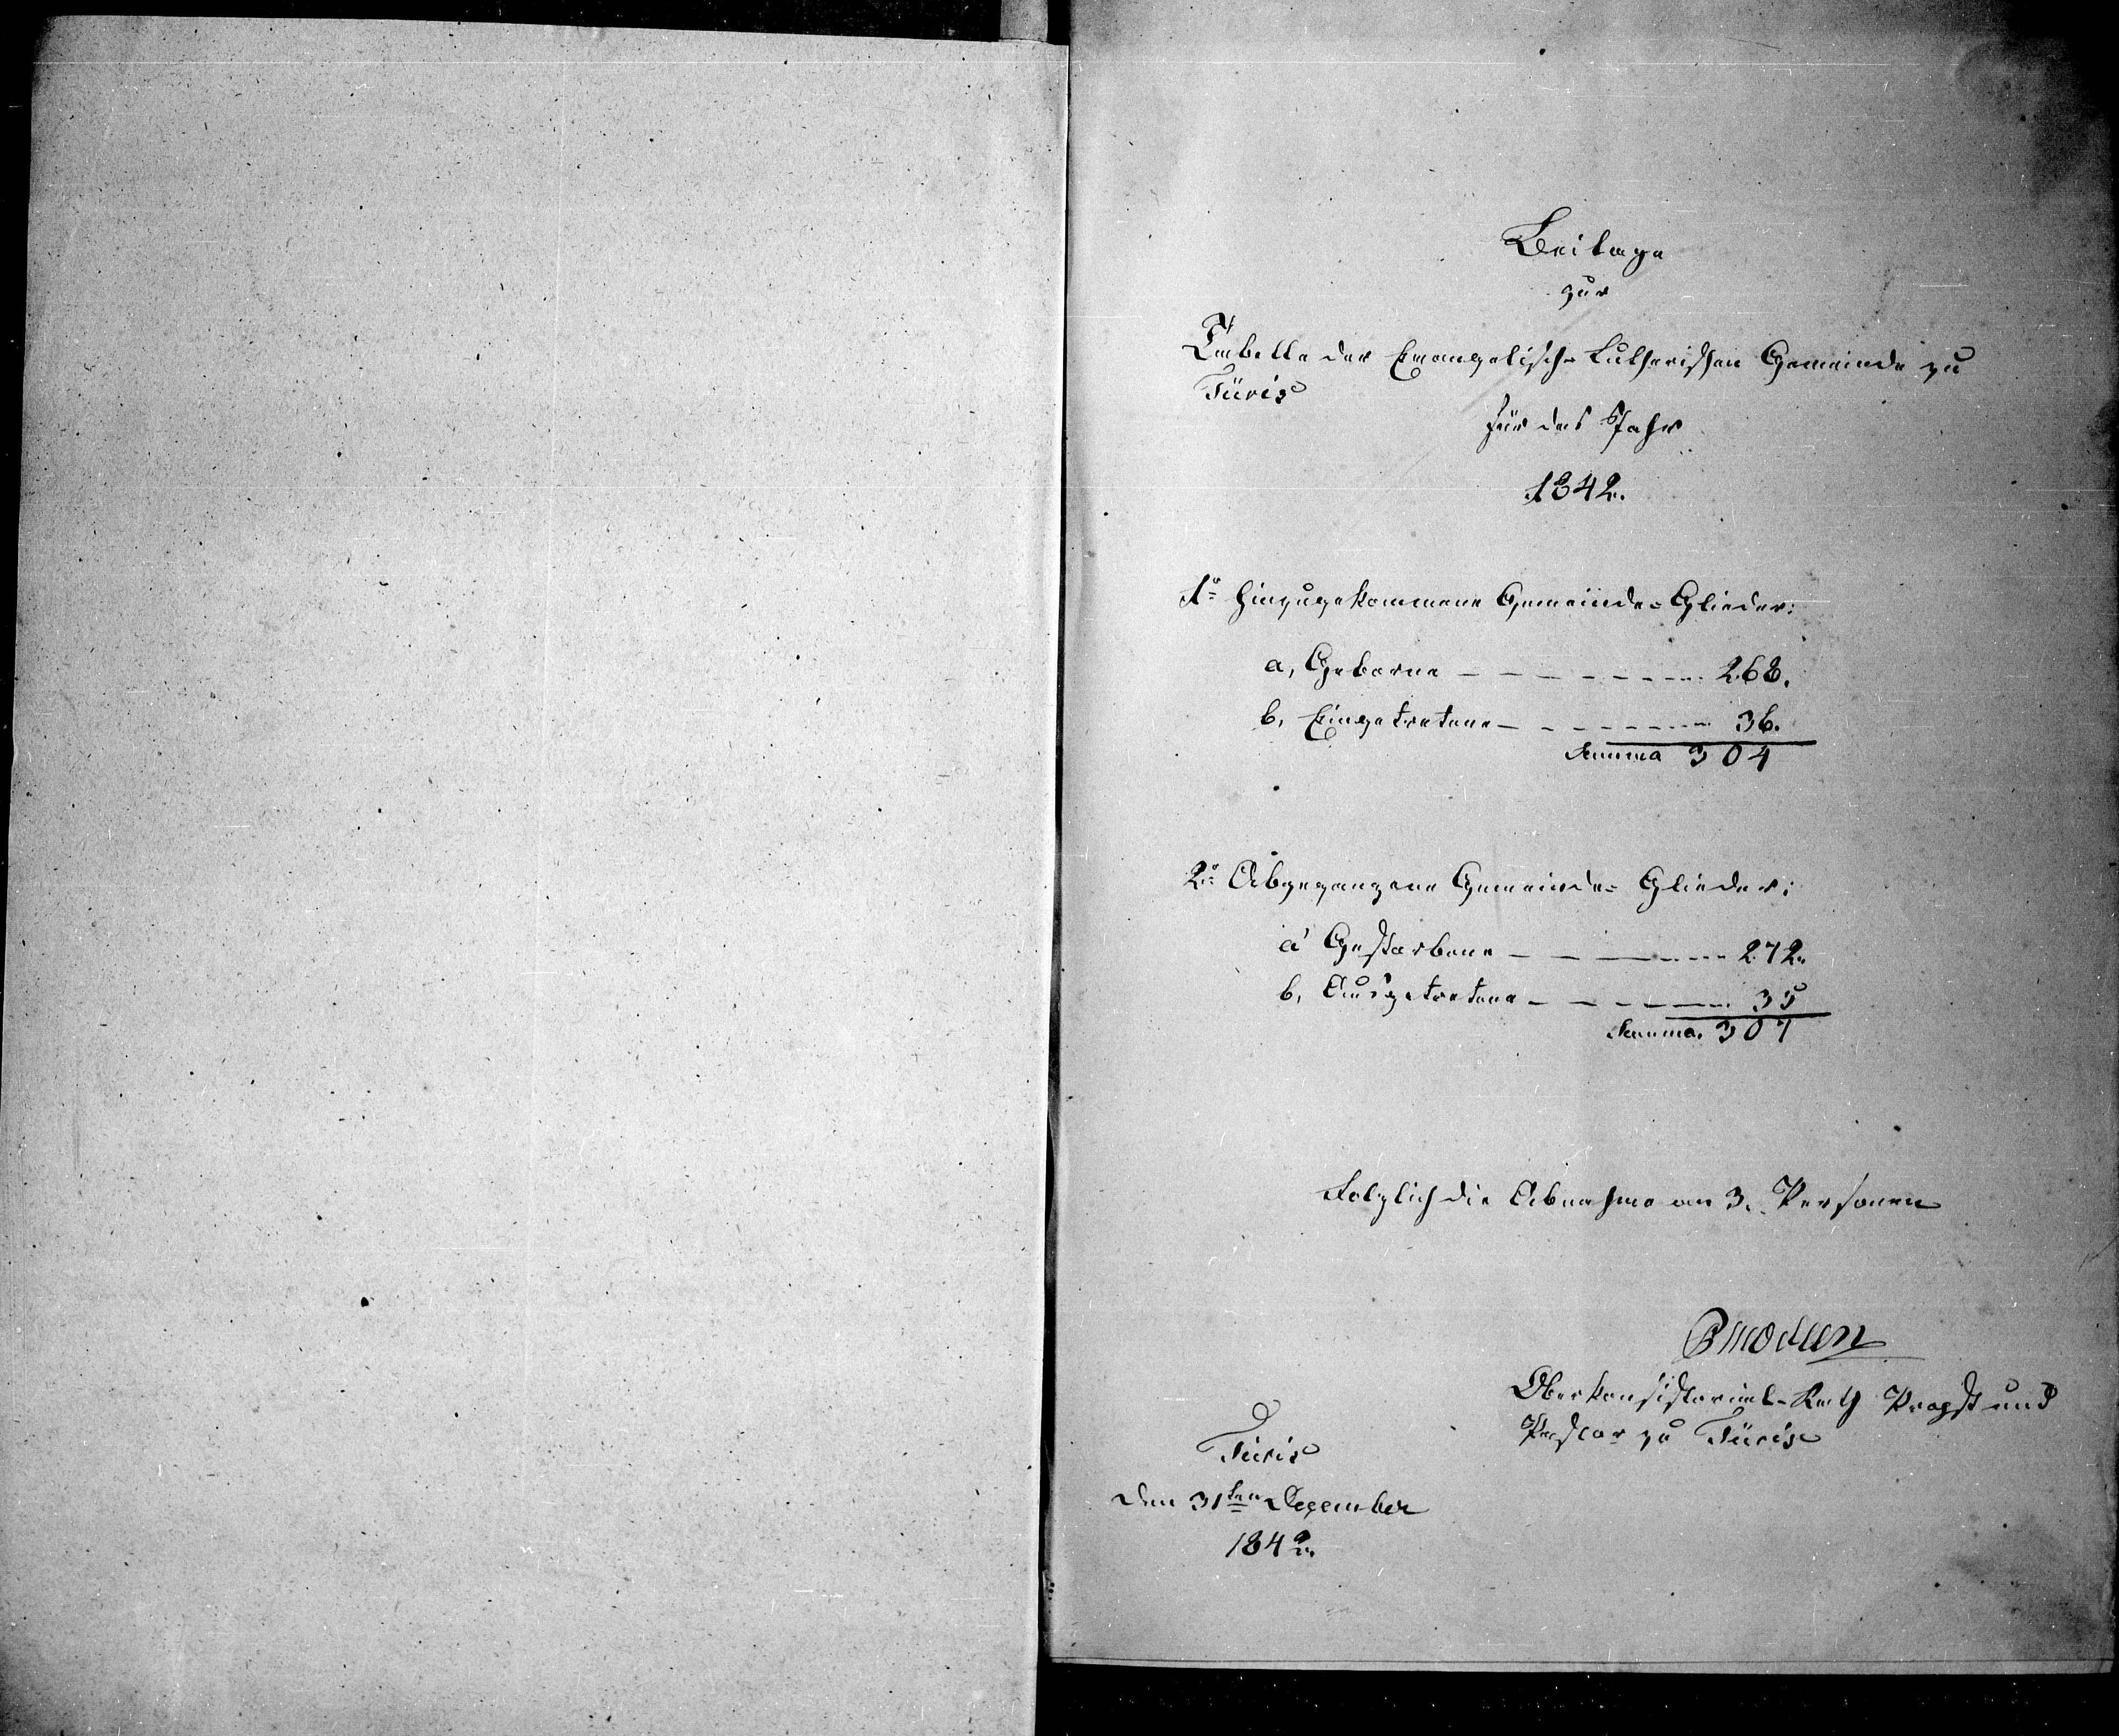 Beilage
zur
Tabelle der Evangelisch-Lutherischen Gemeinde zu
Jüris
für das Jahr
1842.
1º Hinzugekommene Gemeinde-Glieder:
a, Geborne — — — — — — 268.
b, Eingetretene — — — — — 36.
Summa 304
2º Abgegangene Gemeinde-Glieder:
a, Gestorbene — — — — — 272.
b, Ausgetretene — — — — — 35
Summa. 307
Folglich die Abnahme an 3. Personen
Oberkonsistorial-Rath Propst und
Pastor zu Jüris
Jüris
den 31ten December
1842.